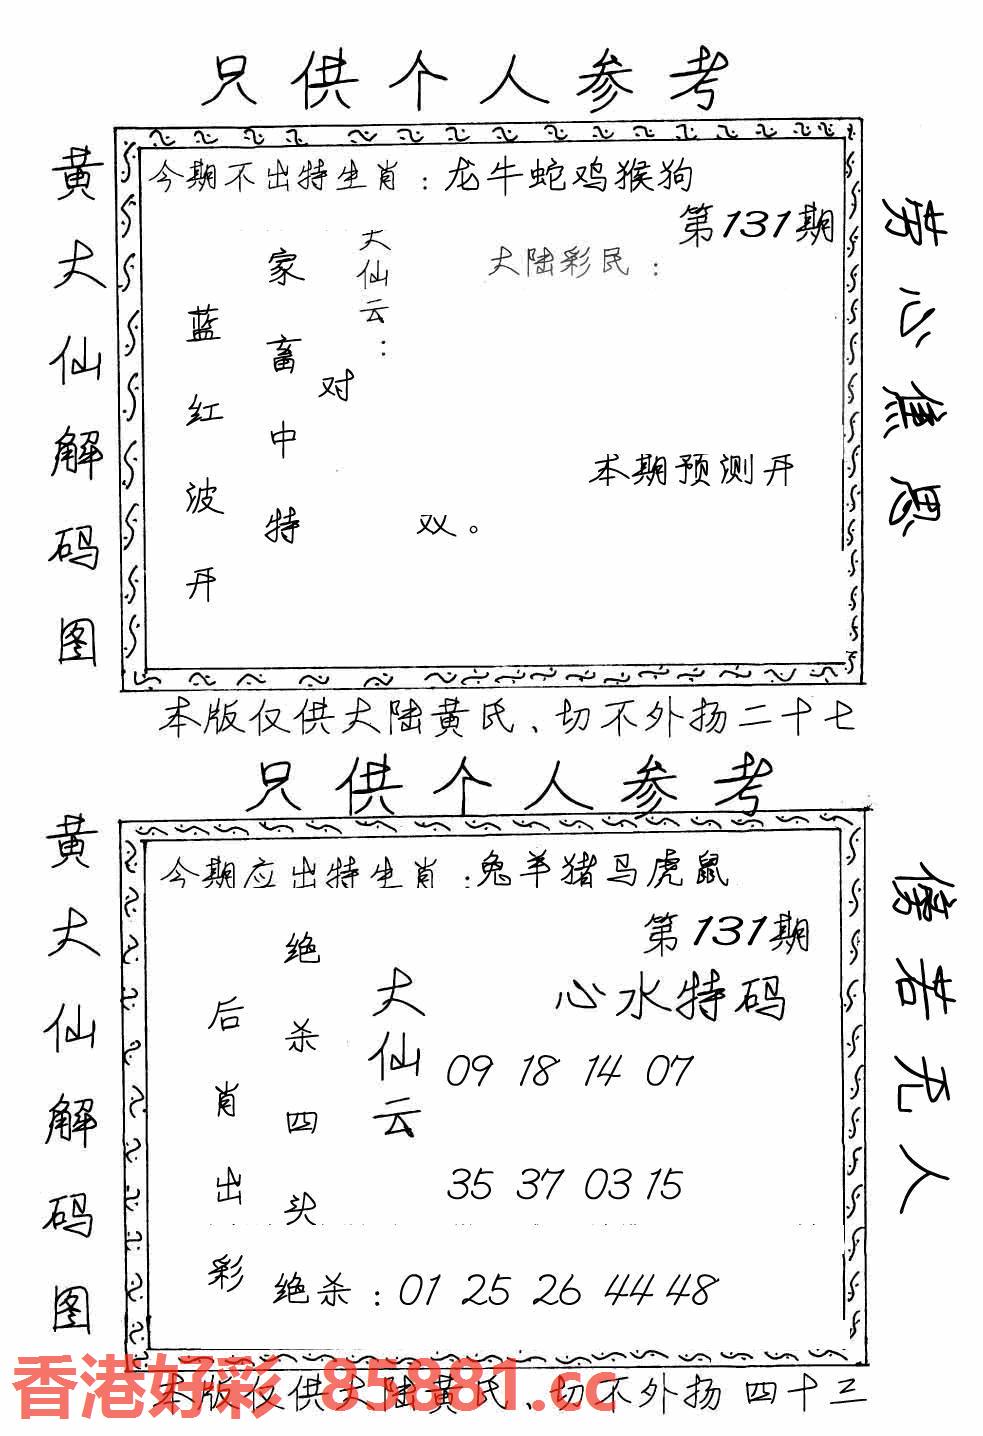 只供个人参考
黄大仙解码图
今期不出特生肖：龙牛蛇鸡猴狗
第131期
大陆彩民：
大仙云：
对
家畜中特
蓝红波开
双。
本期预测开
劳心焦思
本版仅供大陆黄氏、切不外扬二十七
只供个人参考
黄大仙解码图
今期应出特生肖：兔羊猪马虎鼠
第131期
心水特码
大仙云
绝杀四头
后肖出彩
09 18 14 07
35 37 03 15
绝杀：01 25 26 44 48
傍若无人
香港好彩 85881.cc
本版仅供大陆黄氏、切不外扬 四十三